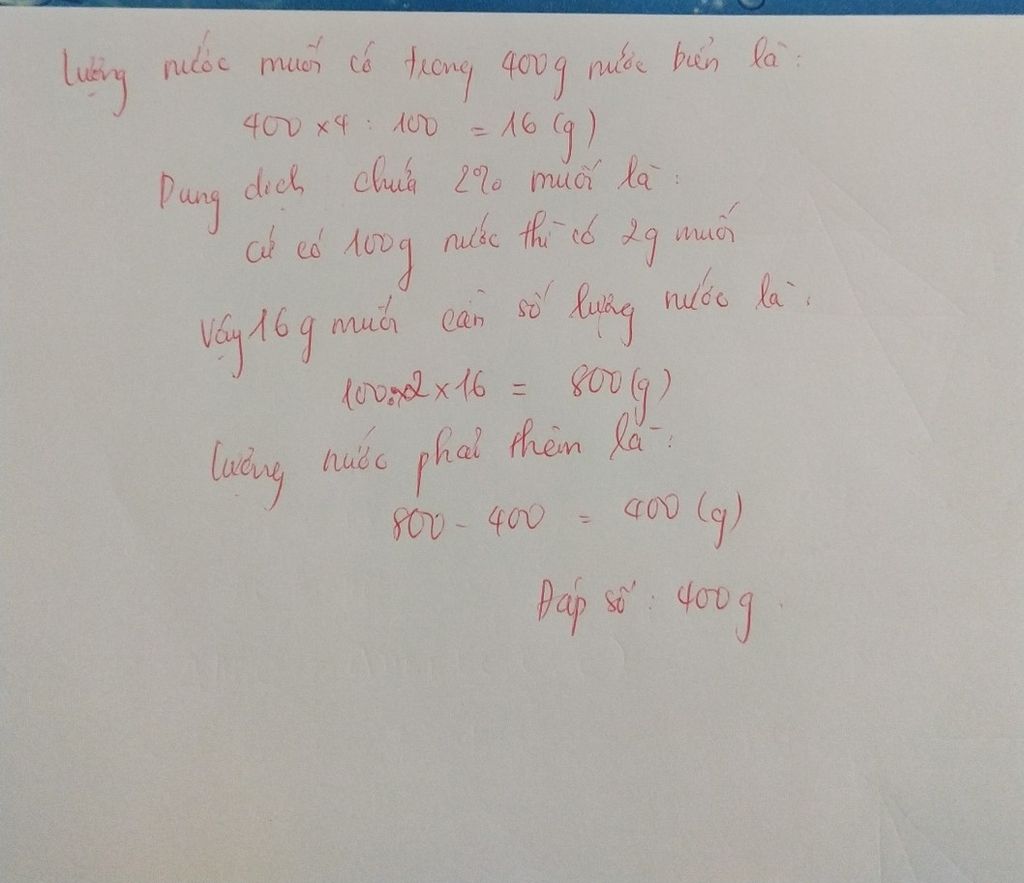 Lượng nước muối có trong 400g nước biển là:
400 x 4 : 100 = 16 (g)
Dung dịch chứa 2% muối là:
Cứ có 100g nước thì có 2g muối
Vậy 16 g muối cần số lượng nước là:
100:2 x 16 = 800 (g)
Lượng nước phải thêm là:
800 - 400 = 400 (g)
Đáp số: 400g.